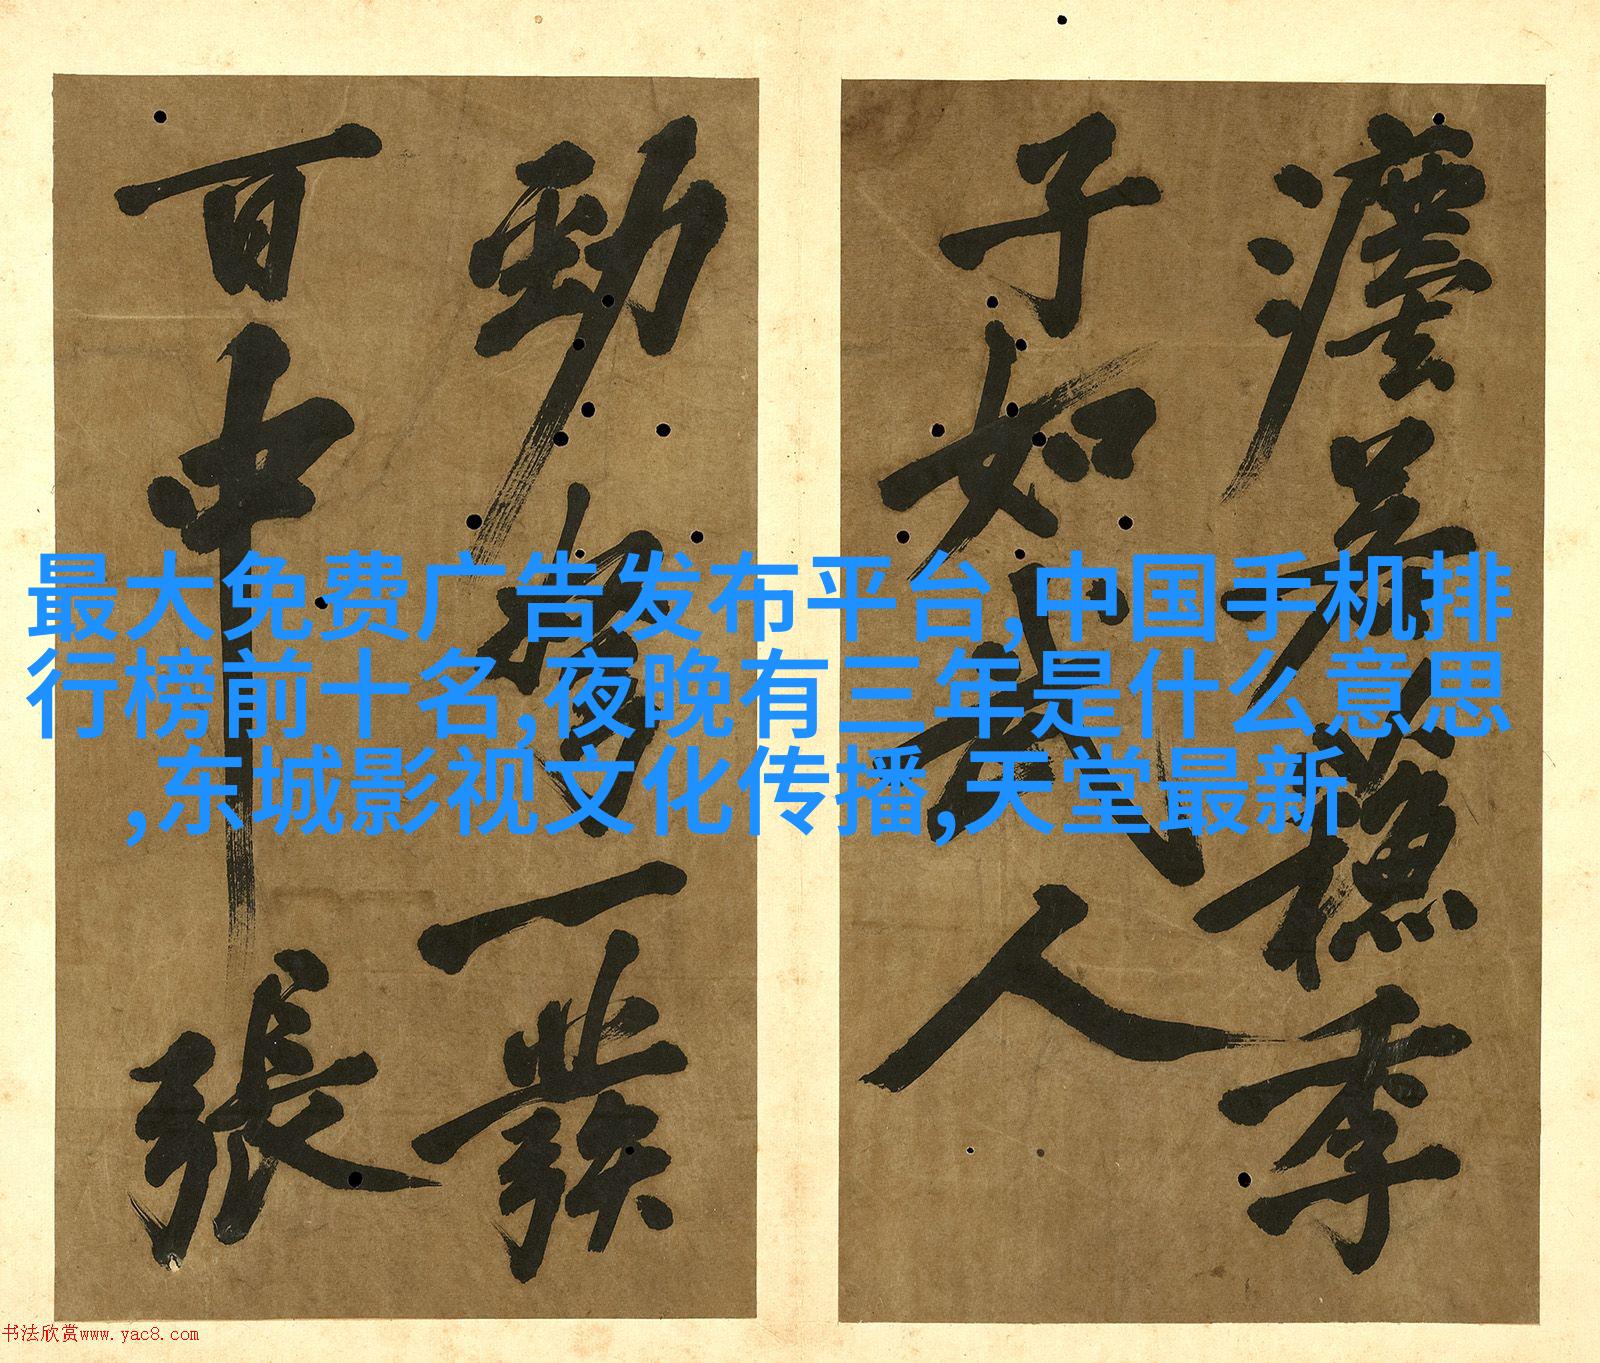 季
子如人
勁一發
百中張
最大免费广告发布平台,中国手机排
行榜前十名,夜晚有三年是什么意思
,东城影视文化传播,天堂最新
书法欣赏www.yac8.com